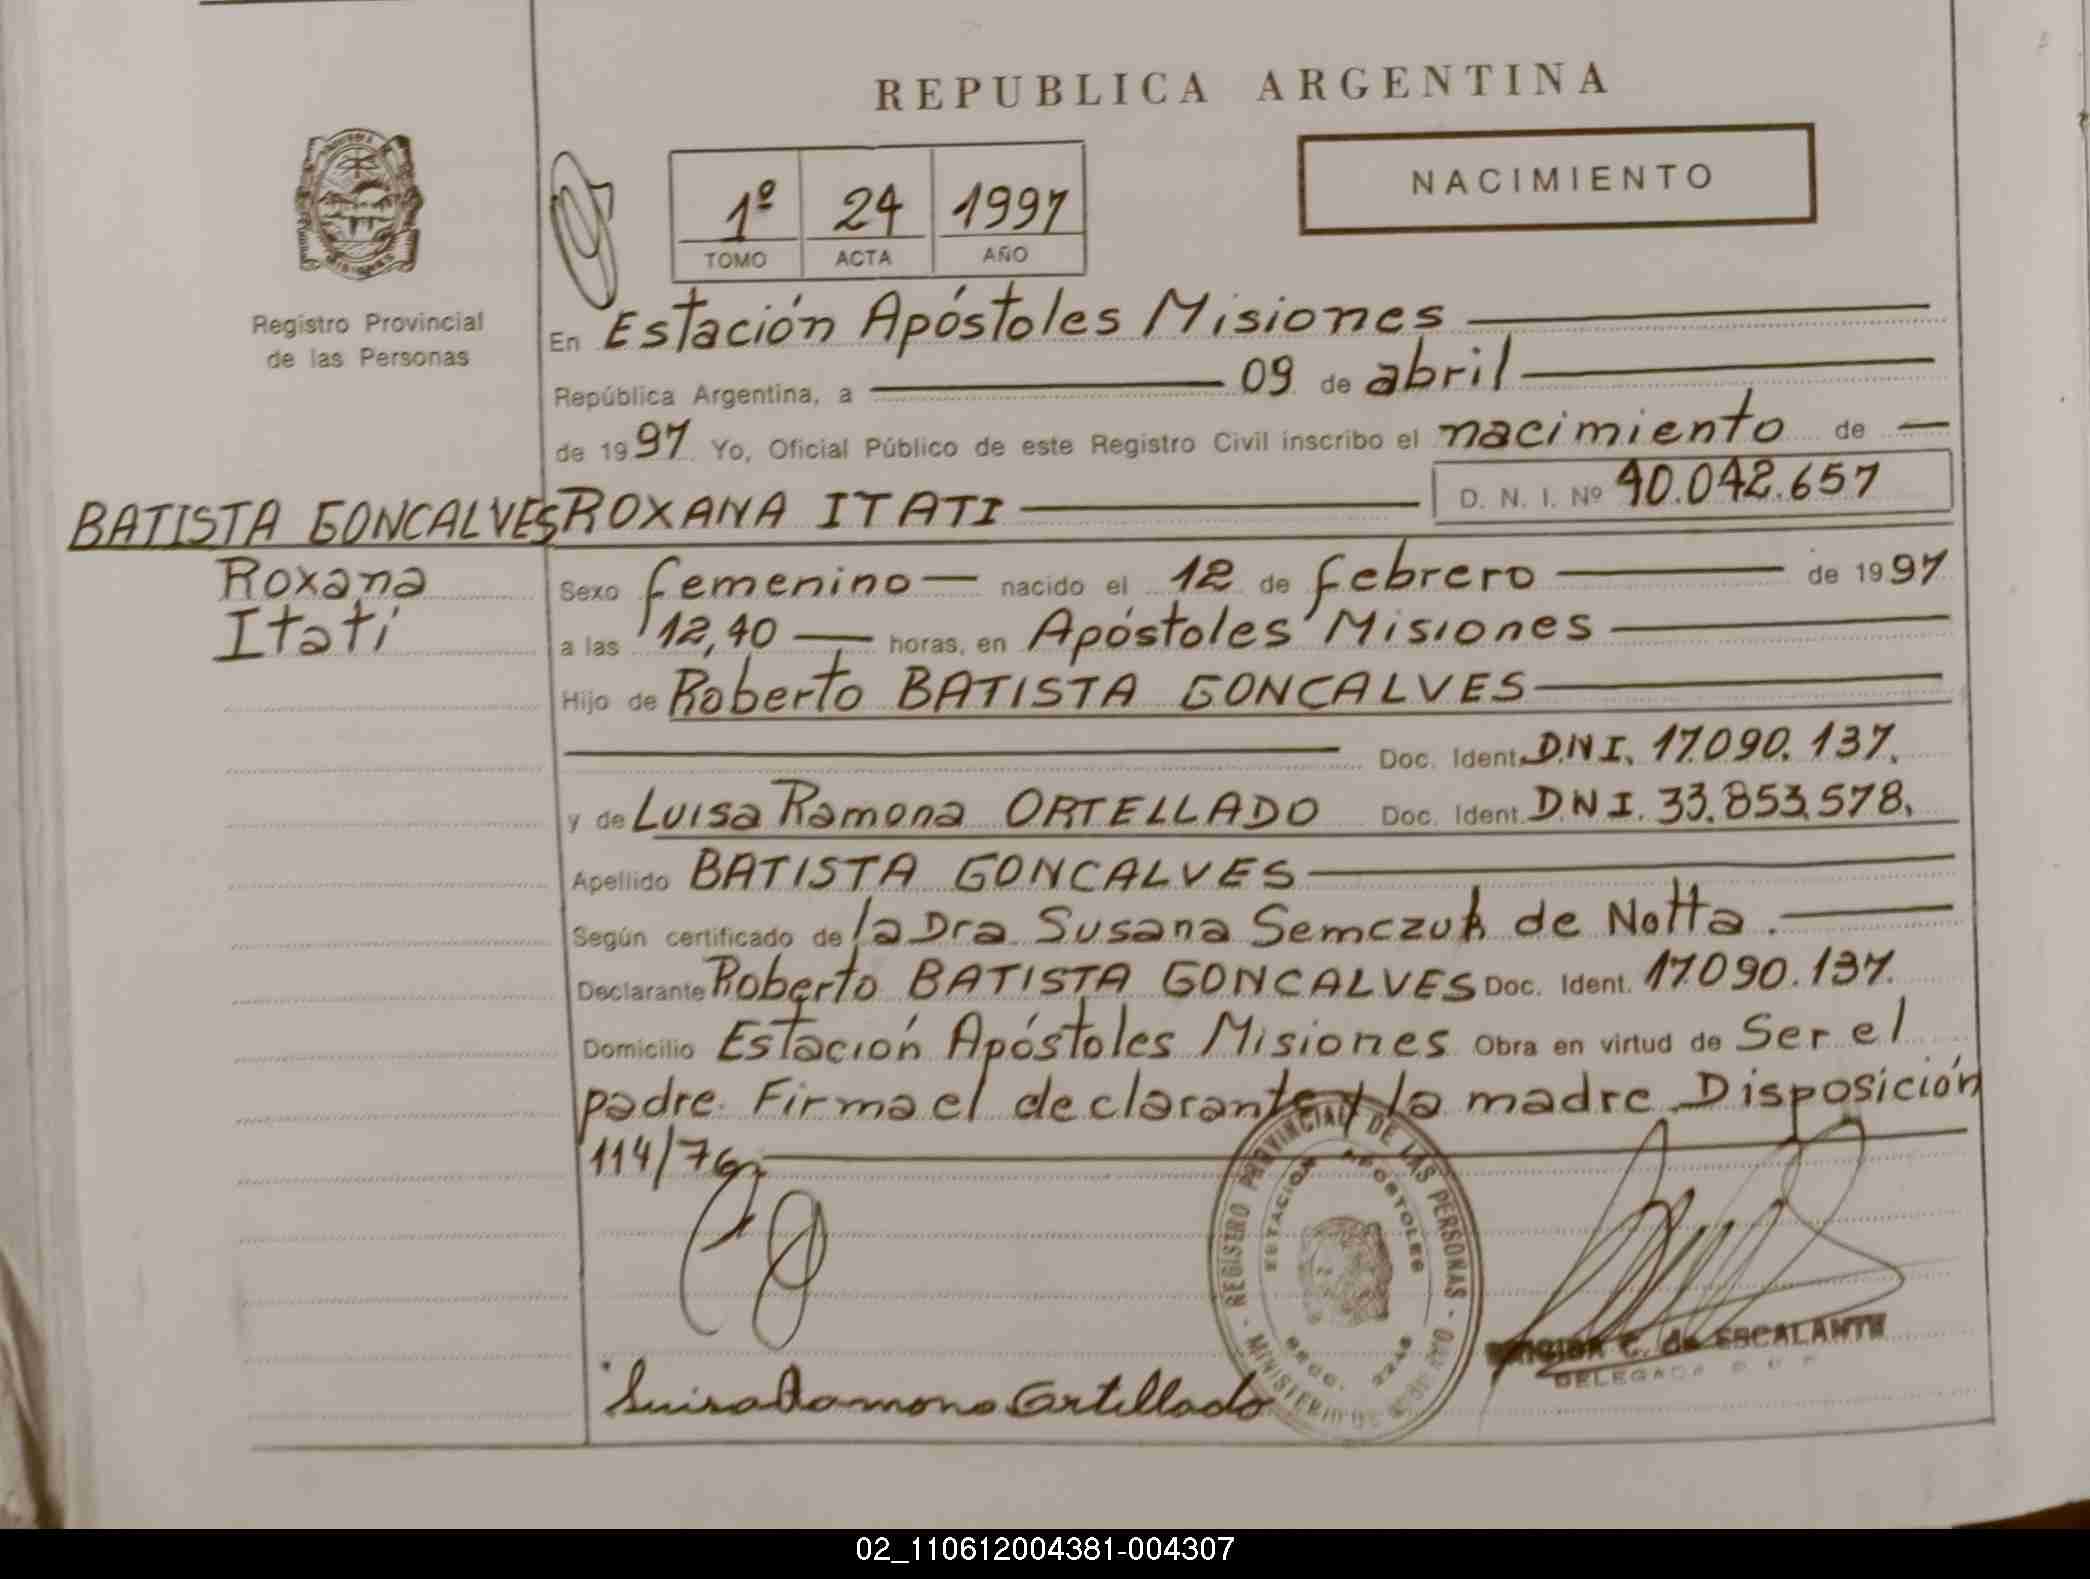 REPUBLICA ARGENTINA
NACIMIENTO
1º 24 1997
TOMO ACTA AÑO
Registro Provincial
de las Personas
En Estación Apóstoles Misiones
República Argentina, a 09 de abril
de 1997 Yo, Oficial Público de este Registro Civil inscribo el nacimiento de
BATISTA GONCALVES ROXANA ITATI D. N. I. Nº 40.042.657
Roxana
Itatí
Sexo femenino nacido el 12 de febrero de 1997
a las 12,40 horas, en Apóstoles Misiones
Hijo de Roberto BATISTA GONCALVES
Doc. Ident. D.N.I. 17.090.137.
y de Luisa Ramona ORTELLADO Doc. Ident. D.N.I. 33.853.578.
Apellido BATISTA GONCALVES
Según certificado de la Dra Susana Semczuk de Notta.
Declarante Roberto BATISTA GONCALVES Doc. Ident. 17.090.137.
Domicilio Estación Apóstoles Misiones Obra en virtud de Ser el
padre. Firma el declarante y la madre. Disposición
114/76
REGISTRO PROVINCIAL DE LAS PERSONAS
ESTACION APOSTOLES
MINISTERIO DE
C. de ESCALANTE
DELEGADA
Luisa Ramona Ortellado
02_110612004381-004307